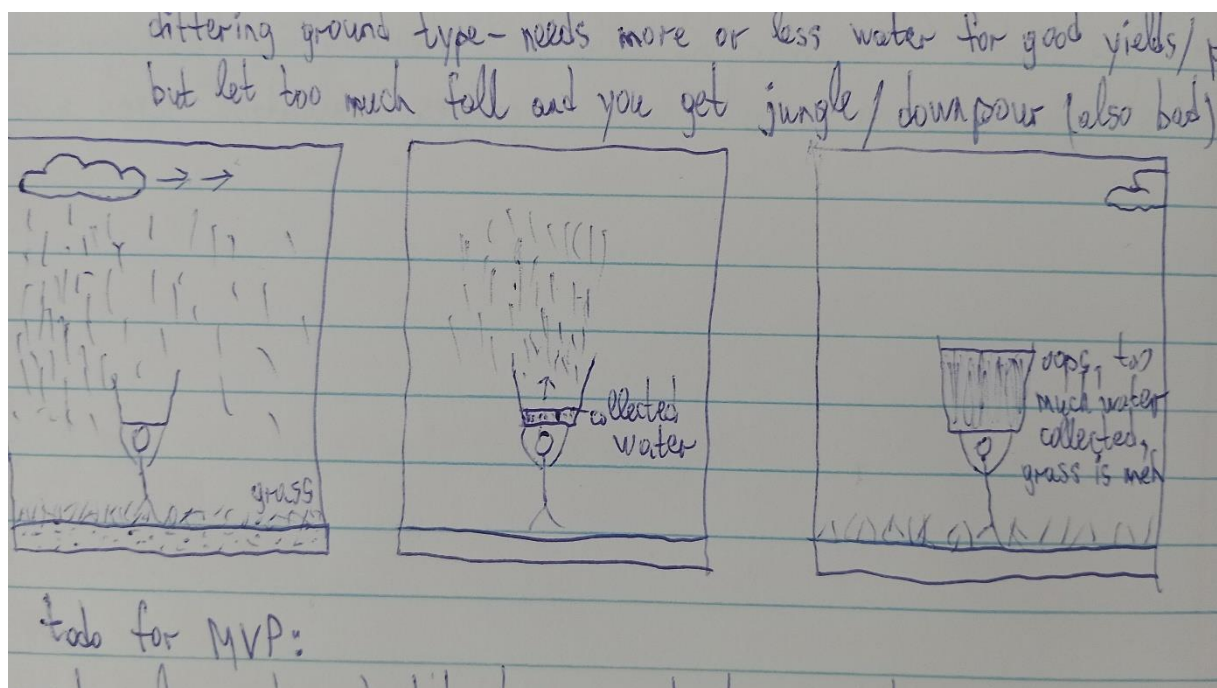 differing ground type - needs more or less water for good yields/
but let too much fall and you get jungle/downpour (also bad)
grass
collected
water
oops, too
much water
collected,
grass is meh
todo for MVP: